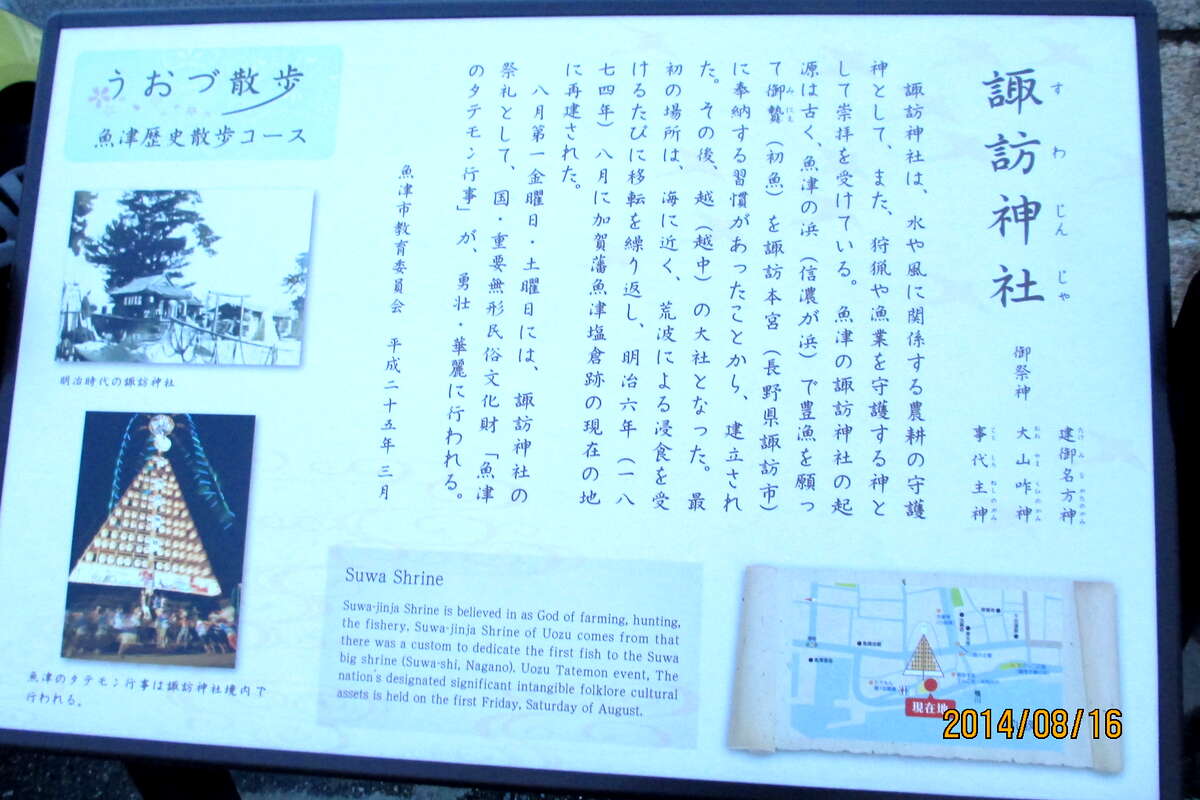 うおづ散歩
魚津歴史散歩コース
明治時代の諏訪神社
魚津のタテモン行事は諏訪神社境内で
行われる。
諏訪神社
すわじんじゃ
御祭神
建御名方神
大山咋神
事代主神
諏訪神社は、水や風に関係する農耕の守護
神として、また、狩猟や漁業を守護する神と
して崇拝を受けている。魚津の諏訪神社の起
源は古く、魚津の浜（信濃が浜）で豊漁を願っ
て御贄（初魚）を諏訪本宮（長野県諏訪市）
に奉納する習慣があったことから、建立され
た。その後、越（越中）の大社となった。最
初の場所は、海に近く、荒波による浸食を受
けるたびに移転を繰り返し、明治六年（一八
七四年）八月に加賀藩魚津塩倉跡の現在の地
に再建された。
八月第一金曜日・土曜日には、諏訪神社の
祭礼として、国・重要無形民俗文化財「魚津
のタテモン行事」が、勇壮・華麗に行われる。
魚津市教育委員会 平成二十五年三月
Suwa Shrine
Suwa-jinja Shrine is believed in as God of farming, hunting,
the fishery. Suwa-jinja Shrine of Uozu comes from that
there was a custom to dedicate the first fish to the Suwa
big shrine (Suwa-shi, Nagano). Uozu Tatemon event, The
nation's designated significant intangible folklore cultural
assets is held on the first Friday, Saturday of August.
現在地
2014/08/16